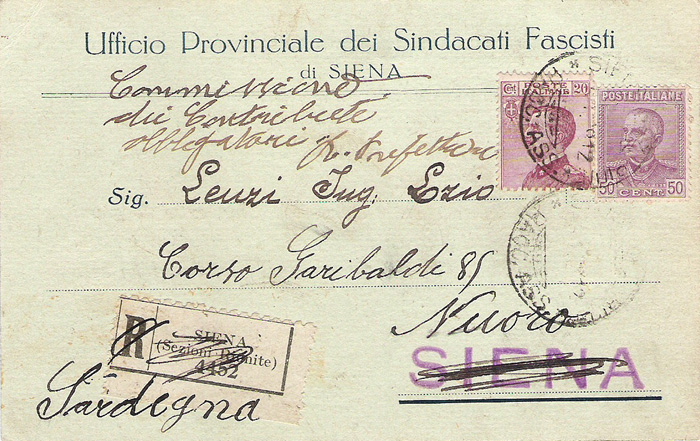 Ufficio Provinciale dei Sindacati Fascisti
di SIENA
Commissione
dei Contributi
obbligatori R. Prefettura
Cent. POSTE ITALIANE 20
POSTE ITALIANE
50 CENT. 50
Sig. Leuzi Ing. Ezio
Corso Garibaldi 85
Nuoro
SIENA
R
SIENA
(Sezioni Riunite)
4452
Sardegna